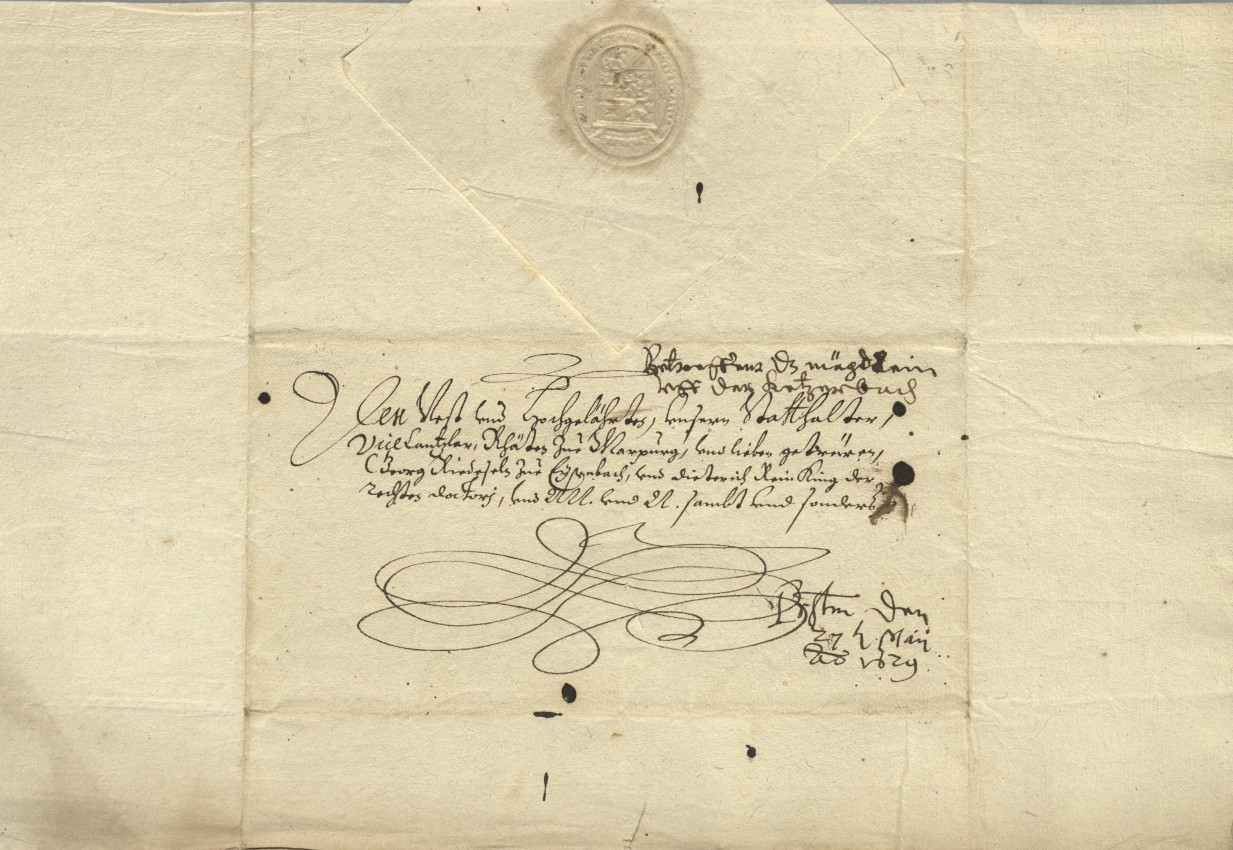 Betreffent dz mägdlein
uff der Ketzerbach
Den Vest und Hochgelährten, unsern Statthalter,
ViceCantzler, Rhäten zue Marpurg, und lieben getrewen,
Georg Riedeseln zue Eysenbach, und Dieterich ReinKing der
rechten doctorj, und All. und A. sambt und sonders
den
27 t Maii
Ao 1629